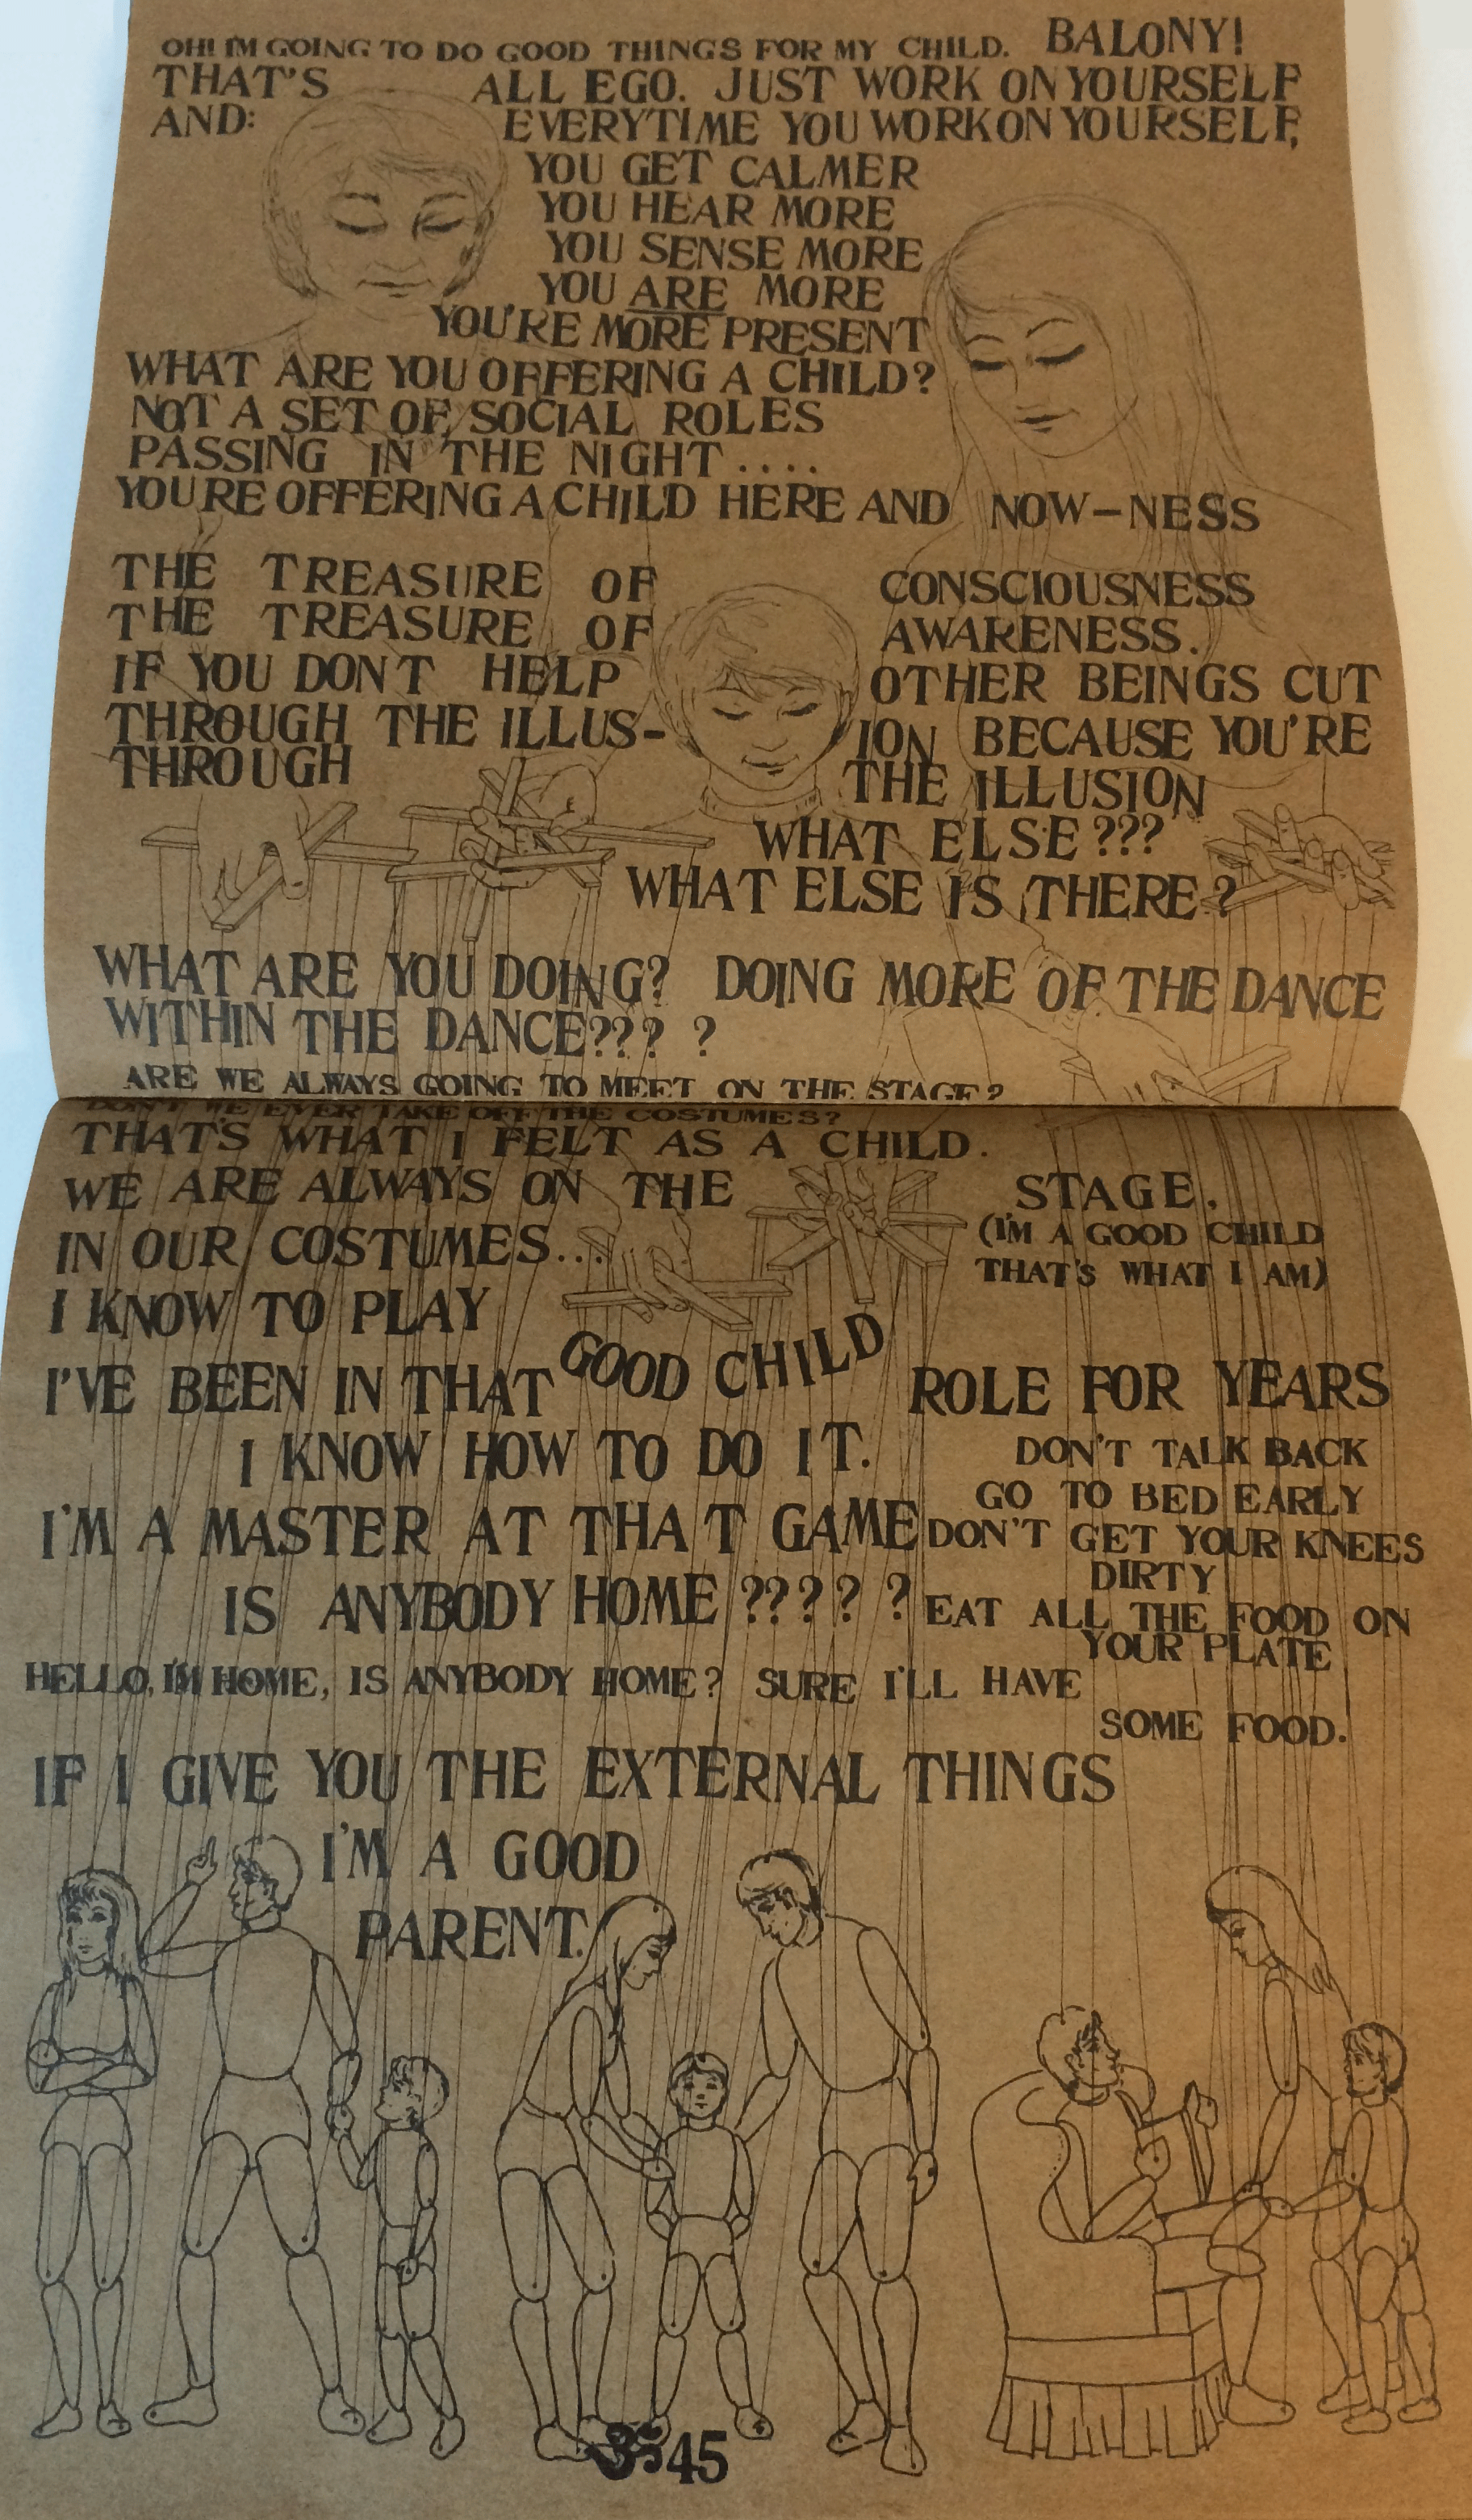 OH! I'M GOING TO DO GOOD THINGS FOR MY CHILD. BALONY!
THAT'S ALL EGO. JUST WORK ON YOURSELF
AND: EVERYTIME YOU WORK ON YOURSELF,
YOU GET CALMER
YOU HEAR MORE
YOU SENSE MORE
YOU ARE MORE
YOU'RE MORE PRESENT
WHAT ARE YOU OFFERING A CHILD?
NOT A SET OF SOCIAL ROLES
PASSING IN THE NIGHT....
YOU'RE OFFERING A CHILD HERE AND NOW-NESS
THE TREASURE OF CONSCIOUSNESS
THE TREASURE OF AWARENESS.
IF YOU DON'T HELP OTHER BEINGS CUT
THROUGH THE ILLUS-ION BECAUSE YOU'RE
THROUGH THE ILLUSION
WHAT ELSE???
WHAT ELSE IS THERE?
WHAT ARE YOU DOING? DOING MORE OF THE DANCE
WITHIN THE DANCE??? ?
ARE WE ALWAYS GOING TO MEET ON THE STAGE?
DON'T WE EVER TAKE OFF THE COSTUMES?
THAT'S WHAT I FELT AS A CHILD.
WE ARE ALWAYS ON THE STAGE.
IN OUR COSTUMES...
(I'M A GOOD CHILD
THAT'S WHAT I AM)
I KNOW TO PLAY
I'VE BEEN IN THAT GOOD CHILD ROLE FOR YEARS
I KNOW HOW TO DO IT.
DON'T TALK BACK
GO TO BED EARLY
I'M A MASTER AT THAT GAME
DON'T GET YOUR KNEES
DIRTY
IS ANYBODY HOME?????
EAT ALL THE FOOD ON
YOUR PLATE
HELLO, I'M HOME, IS ANYBODY HOME? SURE I'LL HAVE
SOME FOOD.
IF I GIVE YOU THE EXTERNAL THINGS
I'M A GOOD
PARENT.
45